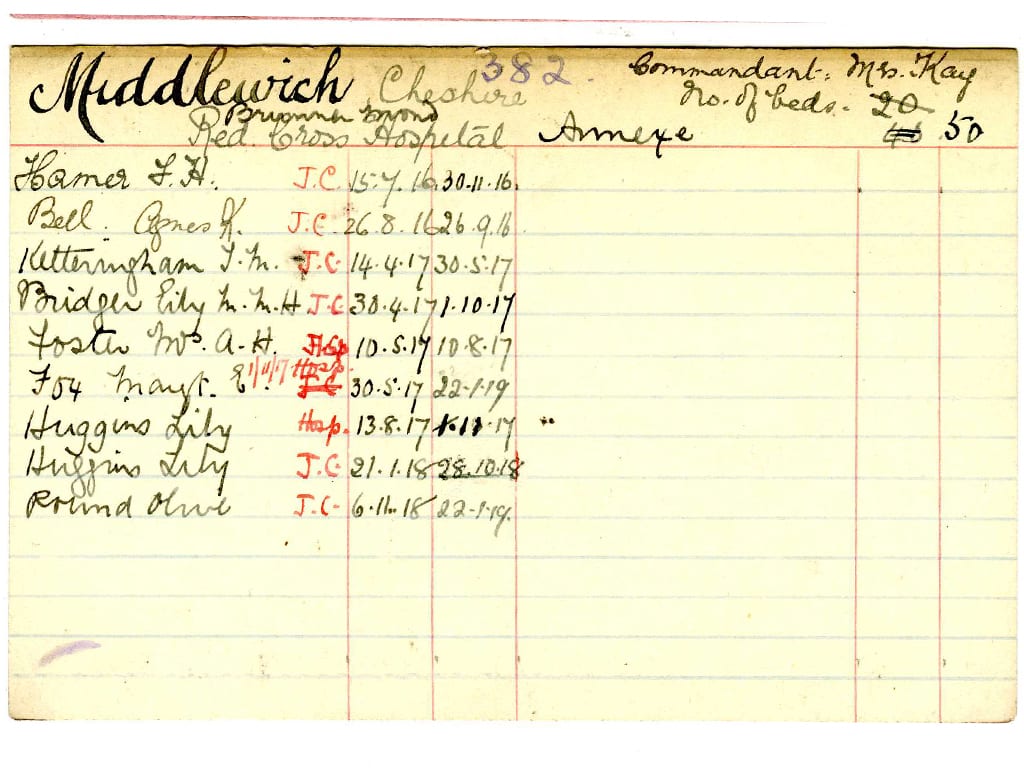 Middlewich Cheshire 382. Commandant: Mrs. Kay
No. of beds. 20
Brunner Mond
Red Cross Hospital Annexe 50
Hamer F. H. J.C. 15.7.16. 30.11.16.
Bell. Agnes K. J.C. 26.8.16 26.9.16.
Ketteringham J. M. J.C. 14.4.17 30.5.17
Bridger Eily M. M. H J.C. 30.4.17 1.10.17
Foster Mrs. A. H. Hsp 10.5.17 10.8.17
1/11/17 Hosp.
Fox Margt. E. J.C 30.5.17 22.1.19
Huggins Lily Hsp. 13.8.17 1.11.17
Huggins Lily J.C. 21.1.18 28.10.18
Round Olive J.C. 6.11.18 22.1.19.